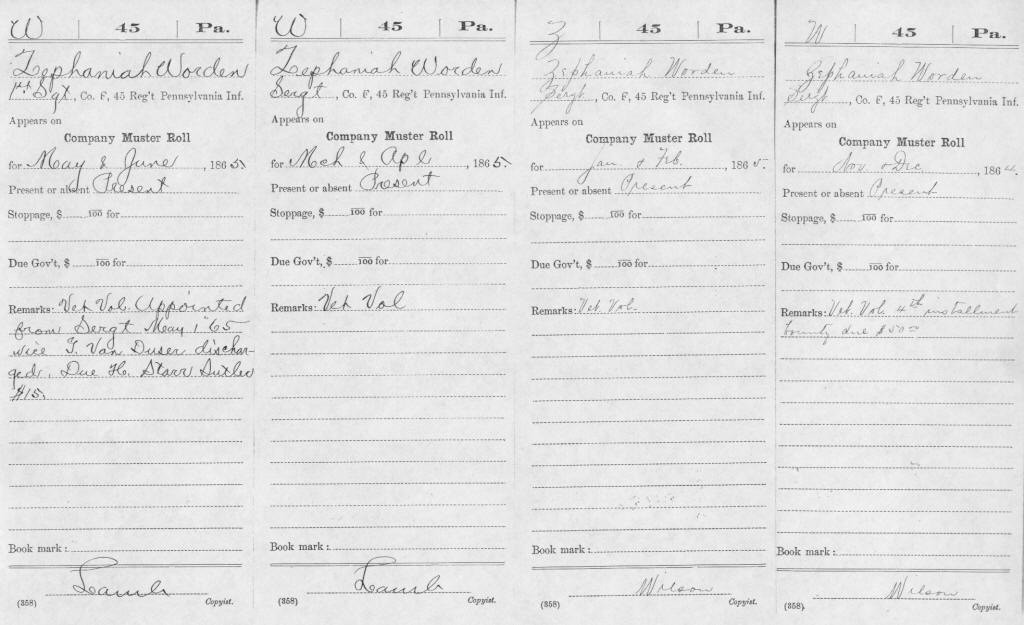 W | 45 | Pa.
Zephaniah Worden
1st Sgt, Co. F, 45 Reg't Pennsylvania Inf.
Appears on
Company Muster Roll
for May & June, 1865.
Present or absent Present
Stoppage, $ 100 for
Due Gov't, $ 100 for
Remarks: Vet Vol. Appointed
from Sergt May 1" 65
vice T. Van Duser dischar-
ged. Due H. Starr Sutler
$15.
Book mark:
Lamb
(358) Copyist.
W | 45 | Pa.
Zephaniah Worden
Sergt, Co. F, 45 Reg't Pennsylvania Inf.
Appears on
Company Muster Roll
for Mch & Apl, 1865.
Present or absent Present
Stoppage, $ 100 for
Due Gov't, $ 100 for
Remarks: Vet Vol
Book mark:
Lamb
(358) Copyist.
Z | 45 | Pa.
Zephaniah Worden
Sergt, Co. F, 45 Reg't Pennsylvania Inf.
Appears on
Company Muster Roll
for Jan & Feb., 1865.
Present or absent Present
Stoppage, $ 100 for
Due Gov't, $ 100 for
Remarks: Vet. Vol.
Book mark:
Wilson
(358) Copyist.
W | 45 | Pa.
Zephaniah Worden
Sergt, Co. F, 45 Reg't Pennsylvania Inf.
Appears on
Company Muster Roll
for Nov & Dec, 1864.
Present or absent Present
Stoppage, $ 100 for
Due Gov't, $ 100 for
Remarks: Vet. Vol. 4th installment
bounty due $50 00
Book mark:
Wilson
(358) Copyist.